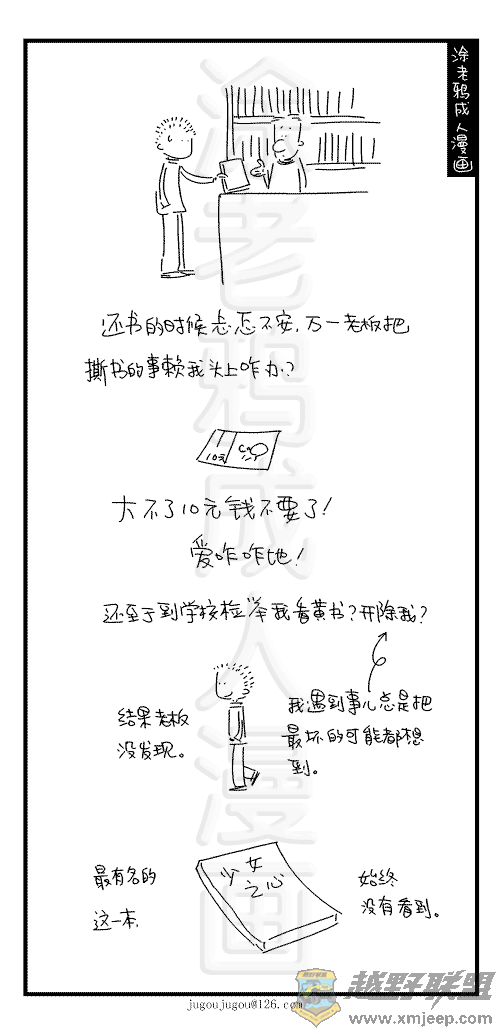 涂老鸦成人漫画
还书的时候忐忑不安,万一老板把
撕书的事赖我头上咋办?
10元
大不了10元钱不要了!
爱咋咋地!
还至于到学校检举我看黄书?开除我?
结果老板
没发现。
我遇到事儿总是把
最坏的可能都想
到。
最有名的
这一本,
少女
之心
始终
没有看到。
涂老鸦成人漫画
jugoujugou@126.com
越野联盟
www.xmjeep.com